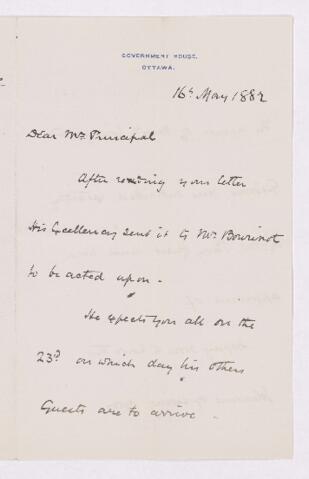 GOVERNMENT HOUSE.
OTTAWA.
16th May 1882
Dear Mr. Principal
After reading your letter
His Excellency sent it to Mr. Bourinot
to be acted upon.
He expects you all on the
23d on which day his others
Guests are to arrive.